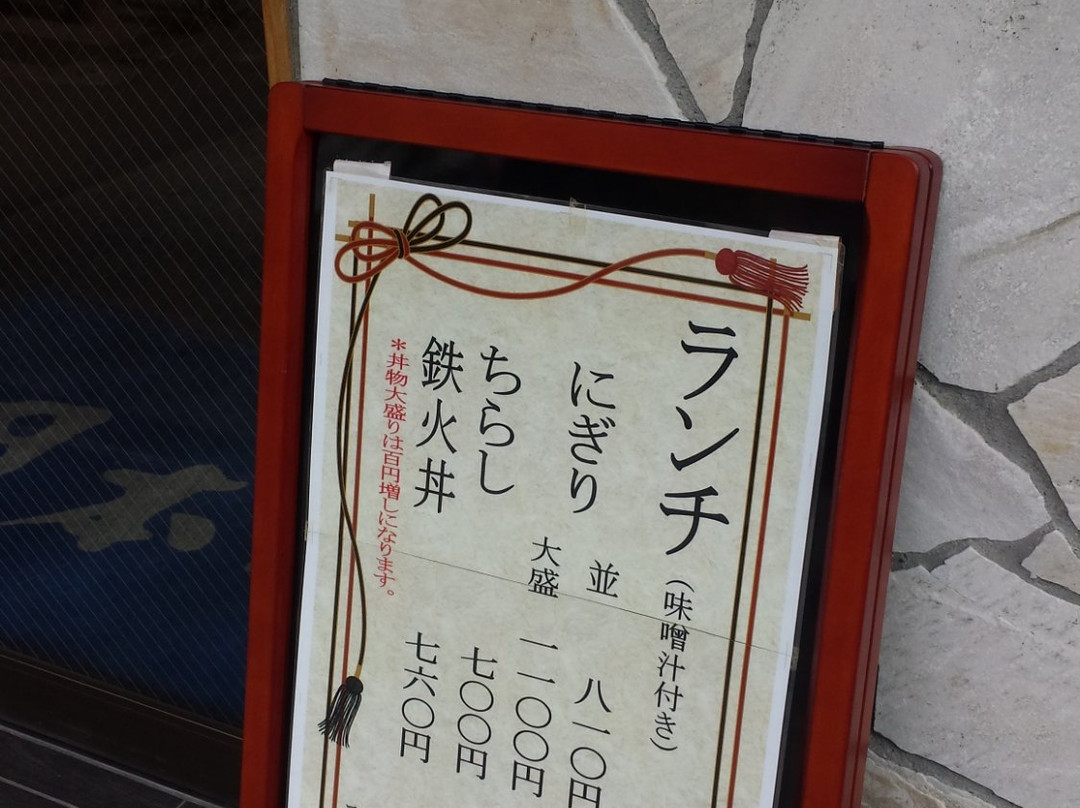 ランチ（味噌汁付き）
にぎり 並 八一〇円
大盛 一一〇〇円
ちらし 七〇〇円
鉄火丼 七六〇円
＊丼物大盛りは百円増しになります。